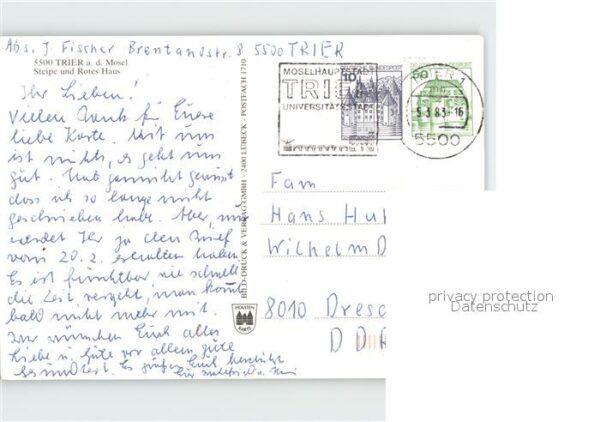 Abs. J. Fischer Brentanostr. 8 5500 TRIER
5500 TRIER a. d. Mosel
Steipe und Rotes Haus
Ihr Lieben!
Vielen Dank für Eure
liebe Karte. Mit uns
ist nichts, es geht uns
gut. Hab gar nicht gewusst
dass ich so lange nicht
geschrieben habe. Aber, nun
werdet Ihr ja den Brief
vom 20.2. erhalten haben.
Es ist furchtbar wie schnell
die Zeit vergeht, man kommt
bald nicht mehr mit.
Wir wünschen Euch alles
Liebe u. Gute vor allem gute
Gesundheit. Es grüßen Euch herzlichst
Eure
BILD-DRUCK & VERLAG GMBH · 2400 LÜBECK · POSTFACH 1710
HOLSTEN
MOSELHAUPTSTADT
TRIER
UNIVERSITÄTSSTADT
TRIER 1
5.3.83-16
5500
Fam
Hans Hu
Wilhelm D
8010 Dresd
DDR
privacy protection
Datenschutz